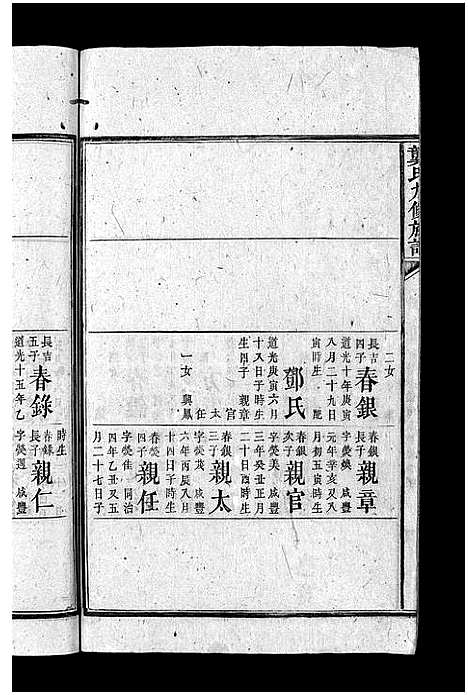 龔氏九修族譜
二女
長吉四子
春銀
道光十年庚寅
八月二十九日
寅時生 配
鄧氏
道光庚寅六月
十八日子時生
生四子 親章
官
太
任
一女 興鳳
春銀長子
親章
字熒煥 咸豐
元年辛亥又八
月初五寅時生
春銀次子
親官
字熒美 咸豐
三年癸丑正月
二十日酉時生
春銀三子
親太
字熒 咸豐
六年丙辰八月
十四日子時生
春熒四子
親任
字熒佳 同治
四年乙丑又五
月二十七日子
長吉五子
春錄
道光十五年乙
時生
春錄長子
親仁
字熒 咸豐